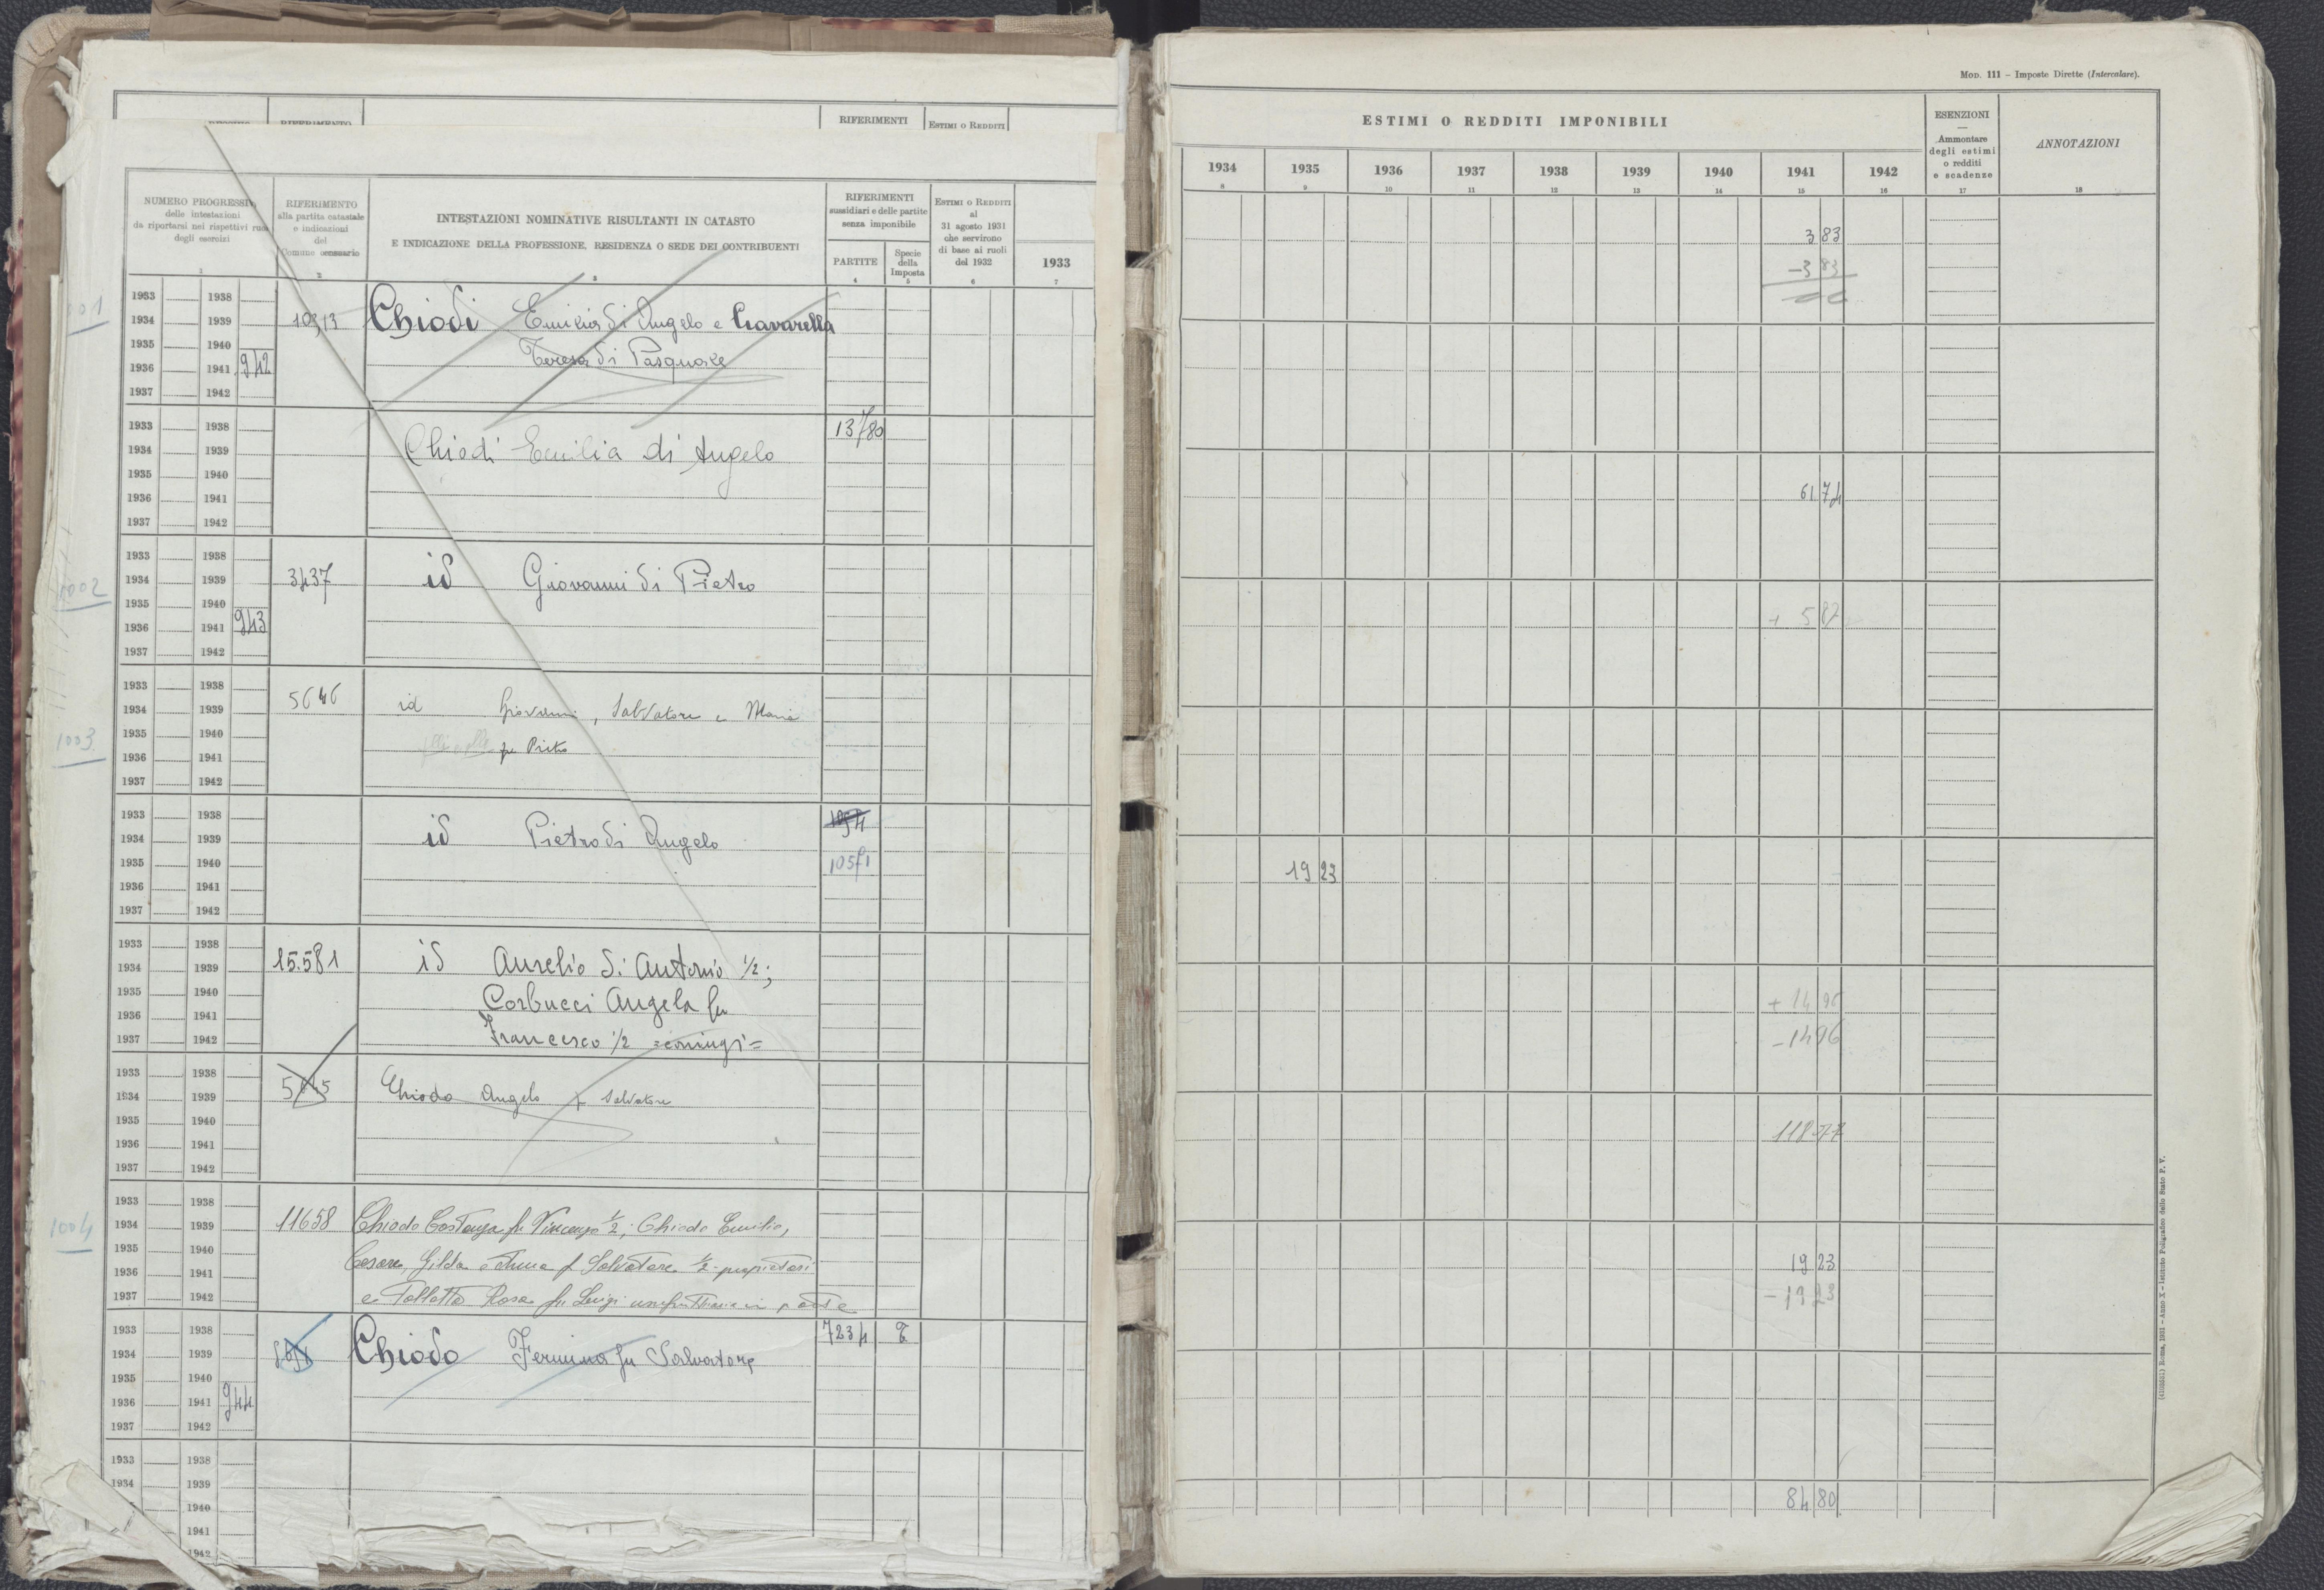 RIFERIMENTO
RIFERIMENTI
ESTIMI O REDDITI
NUMERO PROGRESSIVO
delle intestazioni
da riportarsi nei rispettivi
degli esercizi
RIFERIMENTO
alla partita catastale
e indicazioni
del
Comune censuario
INTESTAZIONI NOMINATIVE RISULTANTI IN CATASTO
E INDICAZIONE DELLA PROFESSIONE, RESIDENZA O SEDE DEI CONTRIBUENTI
RIFERIMENTI
sussidiari e delle partite
senza imponibile
PARTITE
Specie
della
Imposta
ESTIMI O REDDITI
al
31 agosto 1931
che servirono
di base ai ruoli
del 1932
1933
1 2 3 4 5 6 7
1933 1938
1934 1939 10313 Chiodi Emilia di Angelo e Ciavarella
1935 1940 Teresa di Pasquale
1936 1941 942
1937 1942
1933 1938 13780
1934 1939 Chiodi Emilia di Angelo
1935 1940
1936 1941
1937 1942
1933 1938
1934 1939 3437 id Giovanni di Pietro
1002 1935 1940
1936 1941 943
1937 1942
1933 1938 5646 id Giovanni, Salvatore e Maria
1934 1939
1003 1935 1940 fu Pietro
1936 1941
1937 1942
1933 1938
1934 1939 id Pietro di Angelo
1935 1940 10571
1936 1941
1937 1942
1933 1938
1934 1939 15.581 id Aurelio di Antonio 1/2;
1935 1940 Corbucci Angela fu
1936 1941
1937 1942 Francesco 1/2 =coniugi=
1933 1938
1934 1939 5645 Chiodo Angelo fu Salvatore
1935 1940
1936 1941
1937 1942
1933 1938
1004 1934 1939 11658 Chiodo Costanza fu Vincenzo 1/2; Chiodo Emilio,
1935 1940
1936 1941 Cesare, Gilda e Anna fu Salvatore 1/2 proprietari
1937 1942 e Rosa fu Luigi usufruttuaria in parte
1933 1938 7234
1934 1939 Chiodo Fermina fu Salvatore
1935 1940
1936 1941 944
1937 1942
1933 1938
1934 1939
1940
1941
1942
MOD. 111 – Imposte Dirette (Intercalare).
ESTIMI O REDDITI IMPONIBILI
1934 1935 1936 1937 1938 1939 1940 1941 1942
8 9 10 11 12 13 14 15 16 17 18
ESENZIONI
—
Ammontare
degli estimi
o redditi
e scadenze
ANNOTAZIONI
3 83
-3 83
61 74
+ 5 87
19 23
+ 14 96
-14 96
118 77
19 23
-19 23
84 80
(4103551) Roma, 1931 - Anno X - Istituto Poligrafico dello Stato P. V.